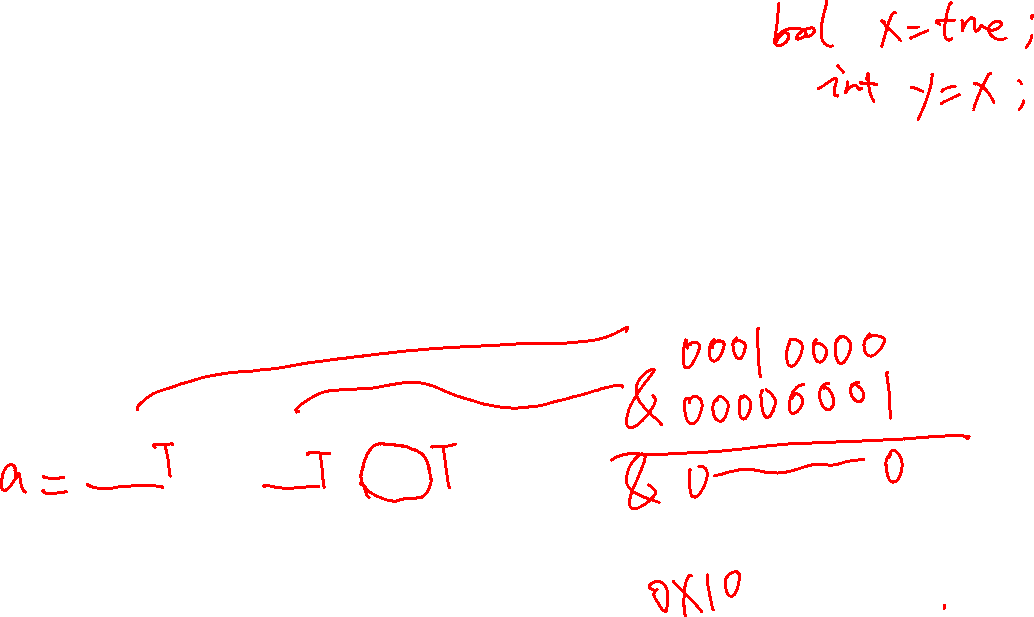 bool x=true;
int y=x;
0001 0000
& 00000001
a = __T __T O T
& 0 —— 0
0x10